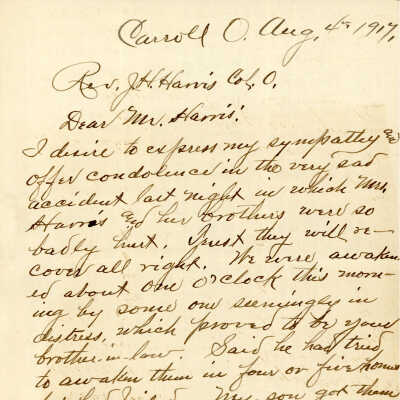 Carroll O. Aug. 4th 1917.
Rev. J.H. Harris Col. O.
Dear Mr. Harris:
I desire to express my sympathy &
offer condolence in the very sad
accident last night in which Mrs.
Harris & her brothers were so
badly hurt. Trust they will re-
cover all right. We were awaken
ed about one O'clock this morn-
ing by some one seemingly in
distress, which proved to be your
brother-in-law. Said he had tried
to awaken them in four or five homes
My son got them